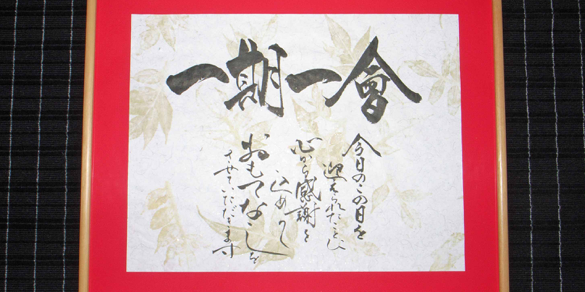 一期一會
今日のこの日を
迎えられたことに
心から感謝を
込めまして
おもてなしを
させていただきます